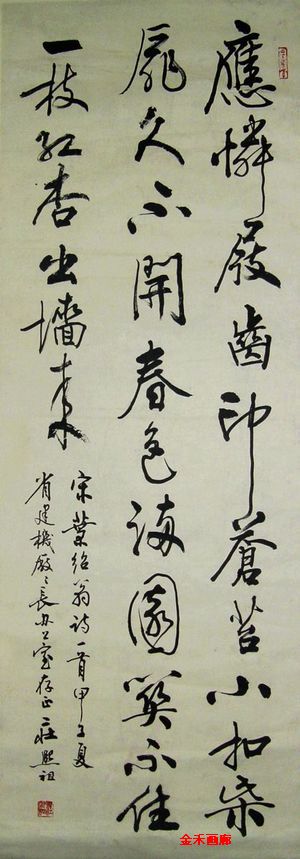 應憐屐齒印蒼苔小扣柴
扉久不開春色滿園關不住
一枝紅杏出墻來
宋葉紹翁詩一首甲子夏
省建機廠々長办公室存正 莊熙祖
金禾画廊